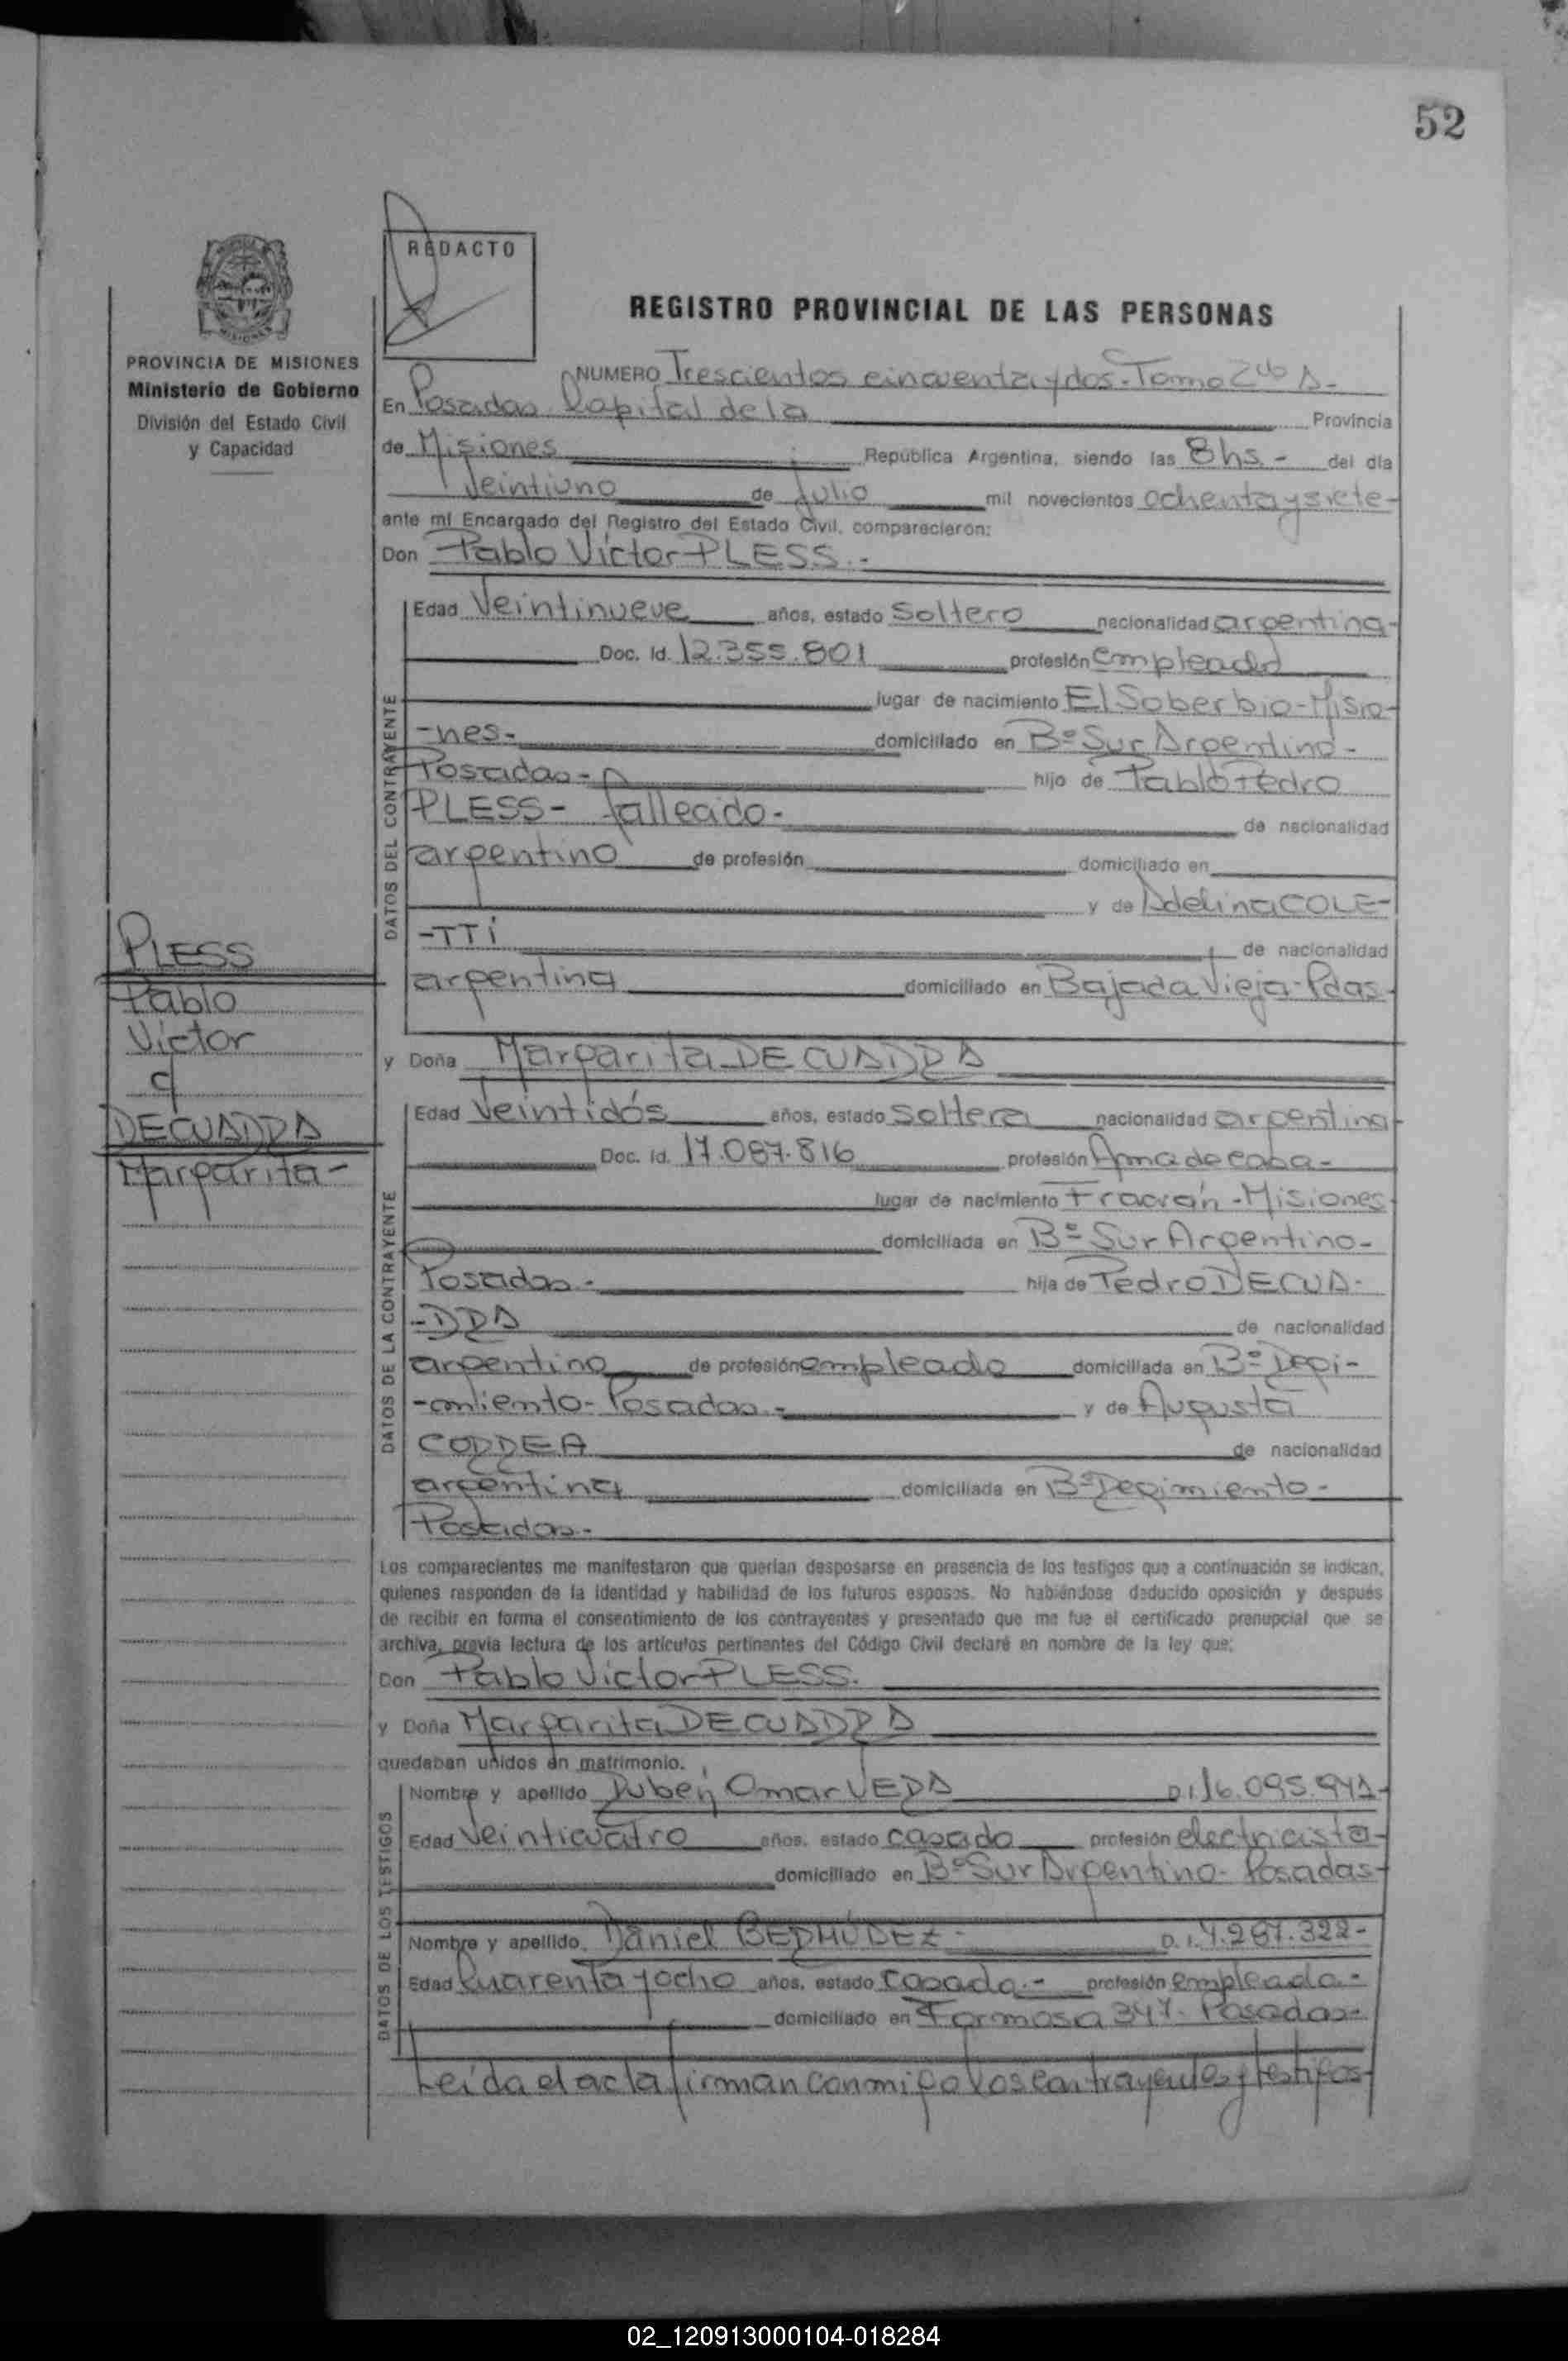 52
REDACTO
REGISTRO PROVINCIAL DE LAS PERSONAS
PROVINCIA DE MISIONES
Ministerio de Gobierno
División del Estado Civil
y Capacidad
NUMERO Trescientos cincuenta y dos - Tomo 2do A-
En Posadas Capital de la Provincia
de Misiones República Argentina, siendo las 8 hs - del día
Veintiuno de Julio mil novecientos ochenta y siete-
ante mí Encargado del Registro del Estado Civil, comparecieron:
Don Pablo Víctor PLESS.-
DATOS DEL CONTRAYENTE
Edad Veintinueve años, estado soltero nacionalidad argentina-
Doc. Id. 12.355.801 profesión empleado
lugar de nacimiento El Soberbio-Misio-
-nes- domiciliado en Bº Sur Argentino-
Posadas- hijo de Pablo Pedro
PLESS- fallecido- de nacionalidad
argentino de profesión domiciliado en
y de Adelina COLE-
-TTi de nacionalidad
argentina domiciliado en Bajada Vieja-Pdas-
PLESS
Pablo
Víctor
c/
DECUADRA
Margarita-
y Doña Margarita DECUADRA
DATOS DE LA CONTRAYENTE
Edad Veintidós años, estado soltera nacionalidad argentina
Doc. Id. 17.087.816 profesión Ama de casa-
lugar de nacimiento Fracrán-Misiones
domiciliada en Bº Sur Argentino-
Posadas- hija de Pedro DECUA-
-DRA de nacionalidad
argentino de profesión empleado domiciliada en Bº Regi-
-miento-Posadas- y de Augusta
CORREA de nacionalidad
argentina domiciliada en Bº Regimiento-
Posadas-
Los comparecientes me manifestaron que querían desposarse en presencia de los testigos que a continuación se indican,
quienes responden de la identidad y habilidad de los futuros esposos. No habiéndose deducido oposición y después
de recibir en forma el consentimiento de los contrayentes y presentado que me fue el certificado prenupcial que se
archiva, previa lectura de los artículos pertinentes del Código Civil declaré en nombre de la ley que:
Don Pablo Victor PLESS.
y Doña Margarita DECUADRA
quedaban unidos en matrimonio.
DATOS DE LOS TESTIGOS
Nombre y apellido Ruben Omar VERA D.I. 16.095.941-
Edad Veinticuatro años, estado casado profesión electricista-
domiciliado en Bº Sur Argentino-Posadas-
Nombre y apellido Daniel BERMÚDEZ- D.I. 7.287.322-
Edad Cuarenta y ocho años, estado casado.- profesión empleado-
domiciliado en Formosa 347-Posadas-
Leída el acta firman conmigo los contrayentes y testigos-
02_120913000104-018284